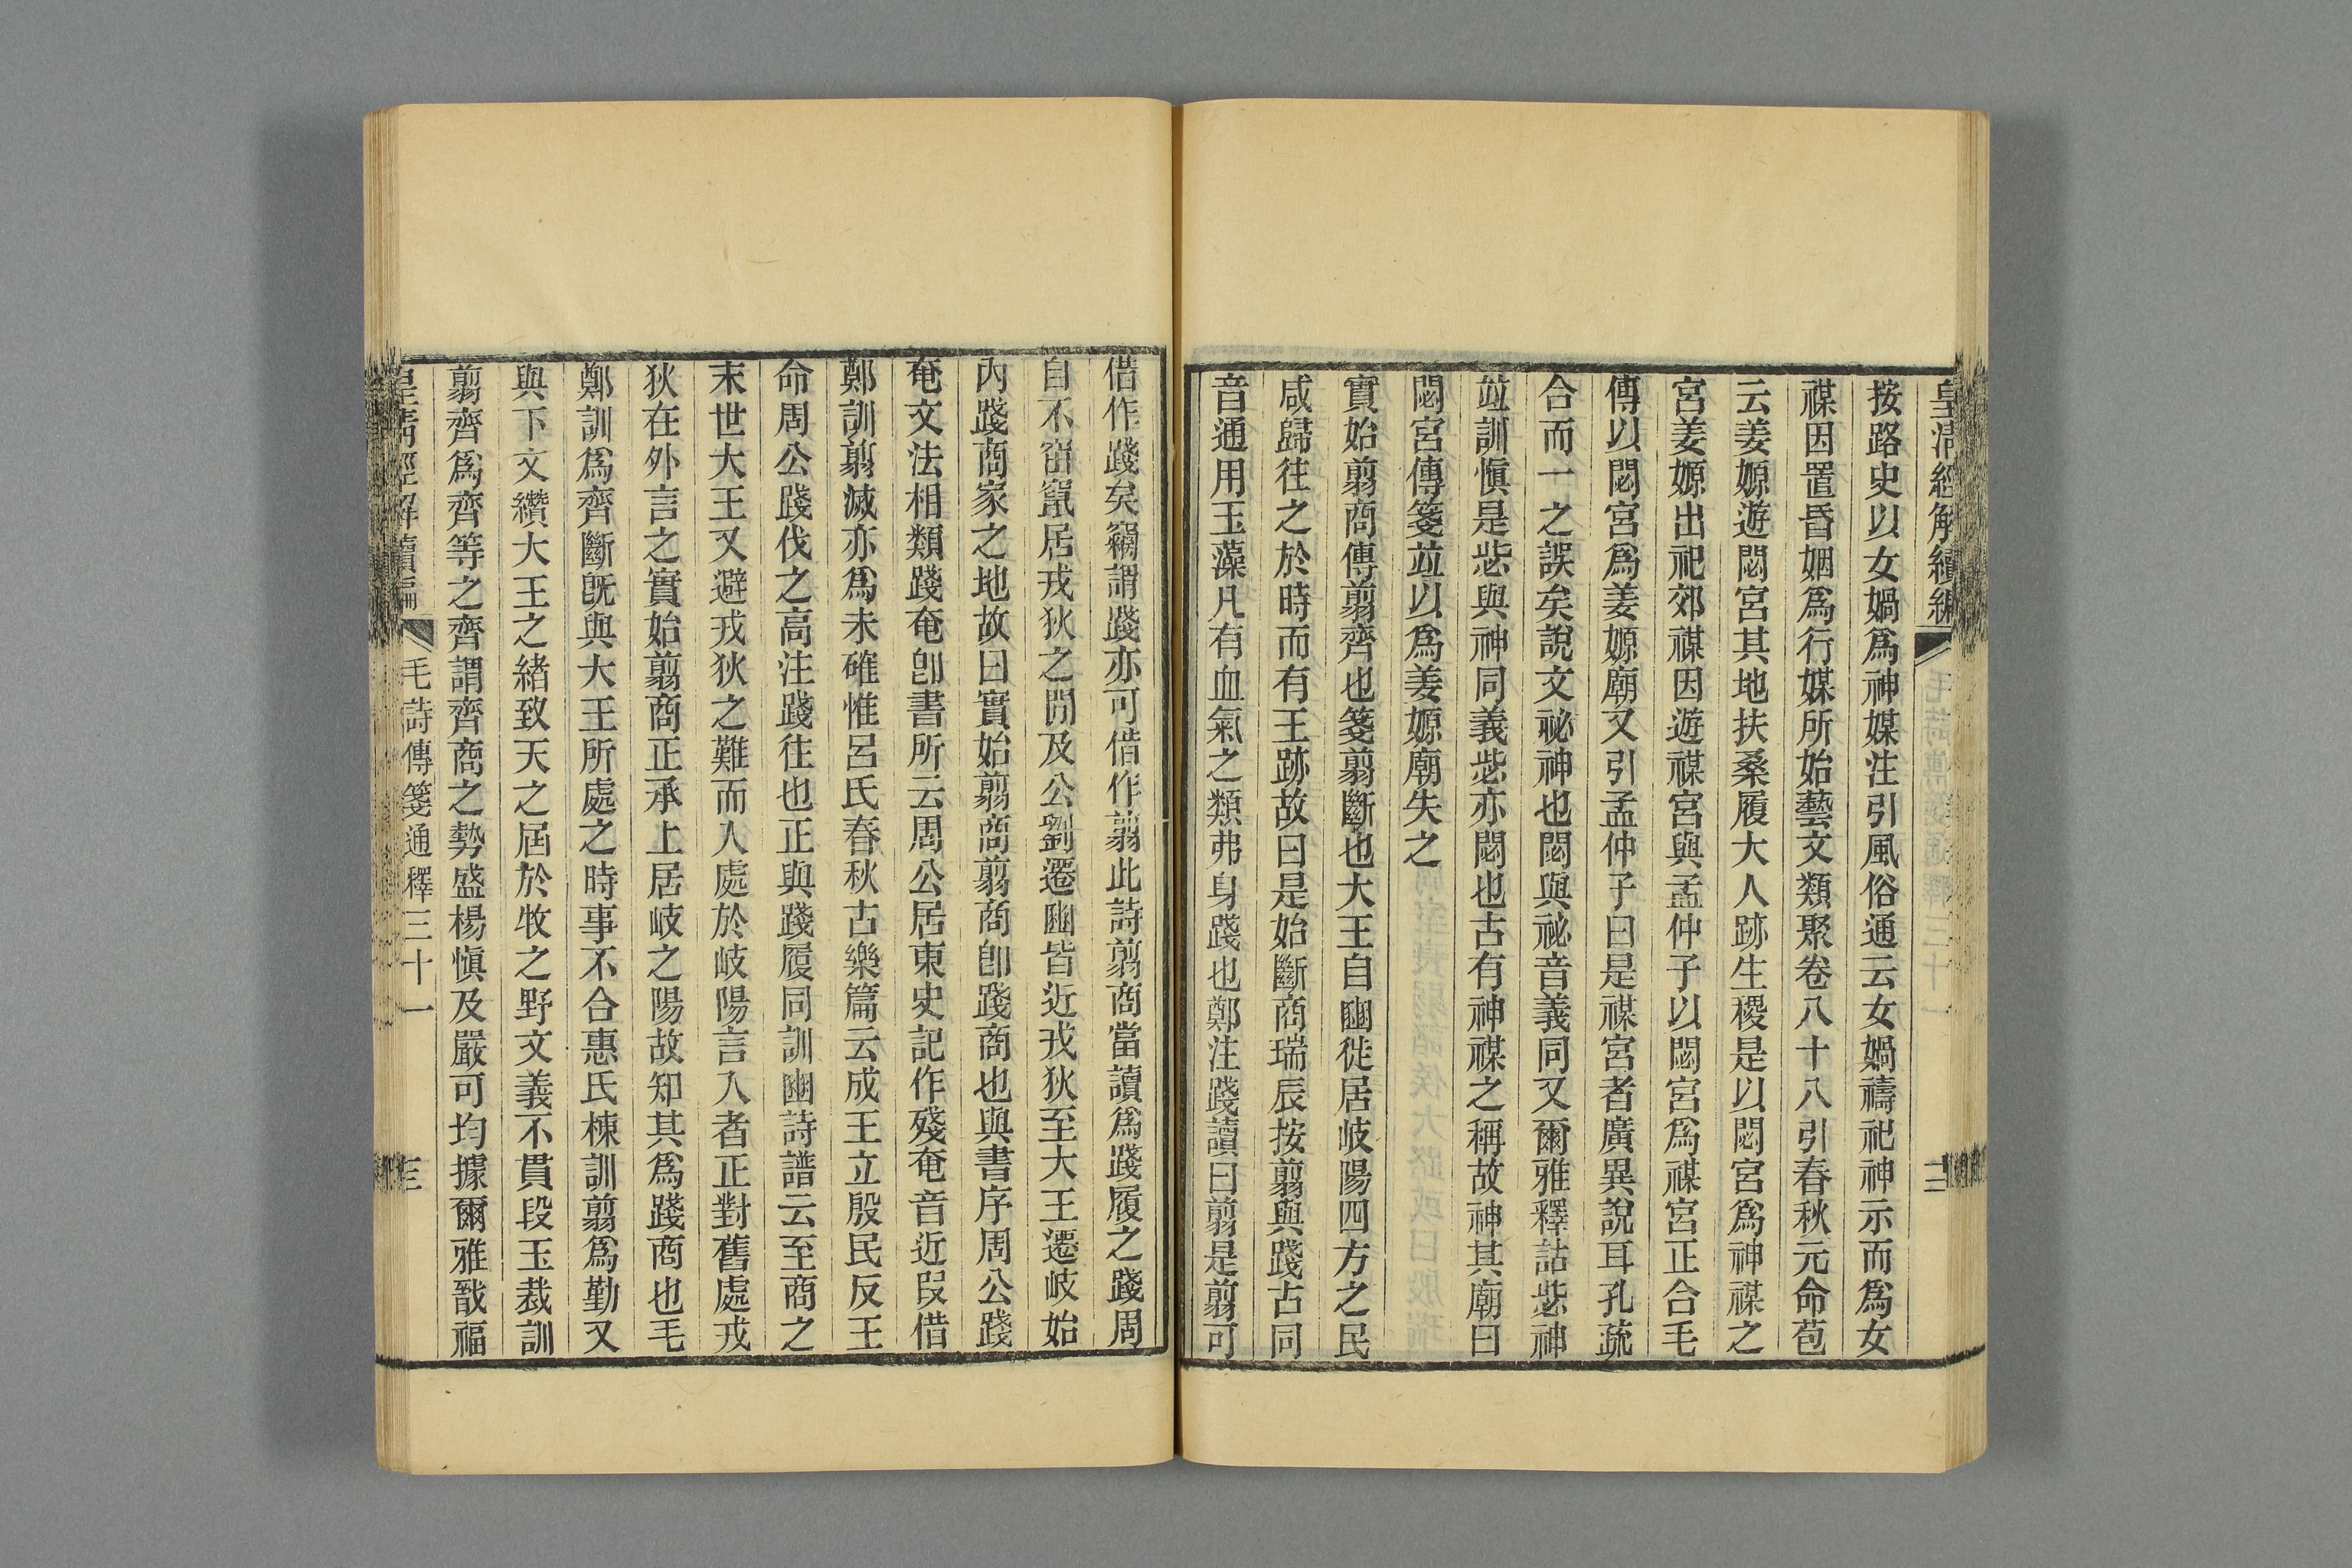 皇清經解續編
十二
按路史以女媧爲神媒注引風俗通云女媧禱祀神示而爲女
禖因置昏姻爲行媒所始藝文類聚卷八十八引春秋元命苞
云姜嫄遊閟宮其地扶桑履大人跡生稷是以閟宮爲神禖之
宮姜嫄出祀郊禖因遊禖宮與孟仲子以閟宮爲禖宮正合毛
傳以閟宮爲姜嫄廟又引孟仲子曰是禖宮者廣異說耳孔疏
合而一之誤矣說文祕神也閟與祕音義同又爾雅釋詁毖神
竝訓愼是毖與神同義毖亦閟也古有神禖之稱故神其廟曰
閟宮傳箋竝以爲姜嫄廟失之
實始翦商傳翦齊也箋翦斷也大王自豳徙居岐陽四方之民
咸歸往之於時而有王跡故曰是始斷商瑞辰按翦與踐古同
音通用玉藻凡有血氣之類弗身踐也鄭注踐讀曰翦是翦可
借作踐矣竊謂踐亦可借作翦此詩翦商當讀爲踐履之踐周
自不窋竄居戎狄之閒及公劉遷豳皆近戎狄至大王遷岐始
內踐商家之地故曰實始翦商翦商卽踐商也與書序周公踐
奄文法相類踐奄卽書所云周公居東史記作殘奄音近叚借
鄭訓翦滅亦爲未確惟呂氏春秋古樂篇云成王立殷民反王
命周公踐伐之高注踐往也正與踐履同訓豳詩譜云至商之
末世大王又避戎狄之難而入處於岐陽言入者正對舊處戎
狄在外言之實始翦商正承上居岐之陽故知其爲踐商也毛
鄭訓爲齊斷旣與大王所處之時事不合惠氏棟訓翦爲勤又
與下文纘大王之緒致天之屆於牧之野文義不貫段玉裁訓
翦齊爲齊等之齊謂齊商之勢盛楊愼及嚴可均據爾雅戩福
皇清經解續編
毛詩傳箋通釋三十一
十三